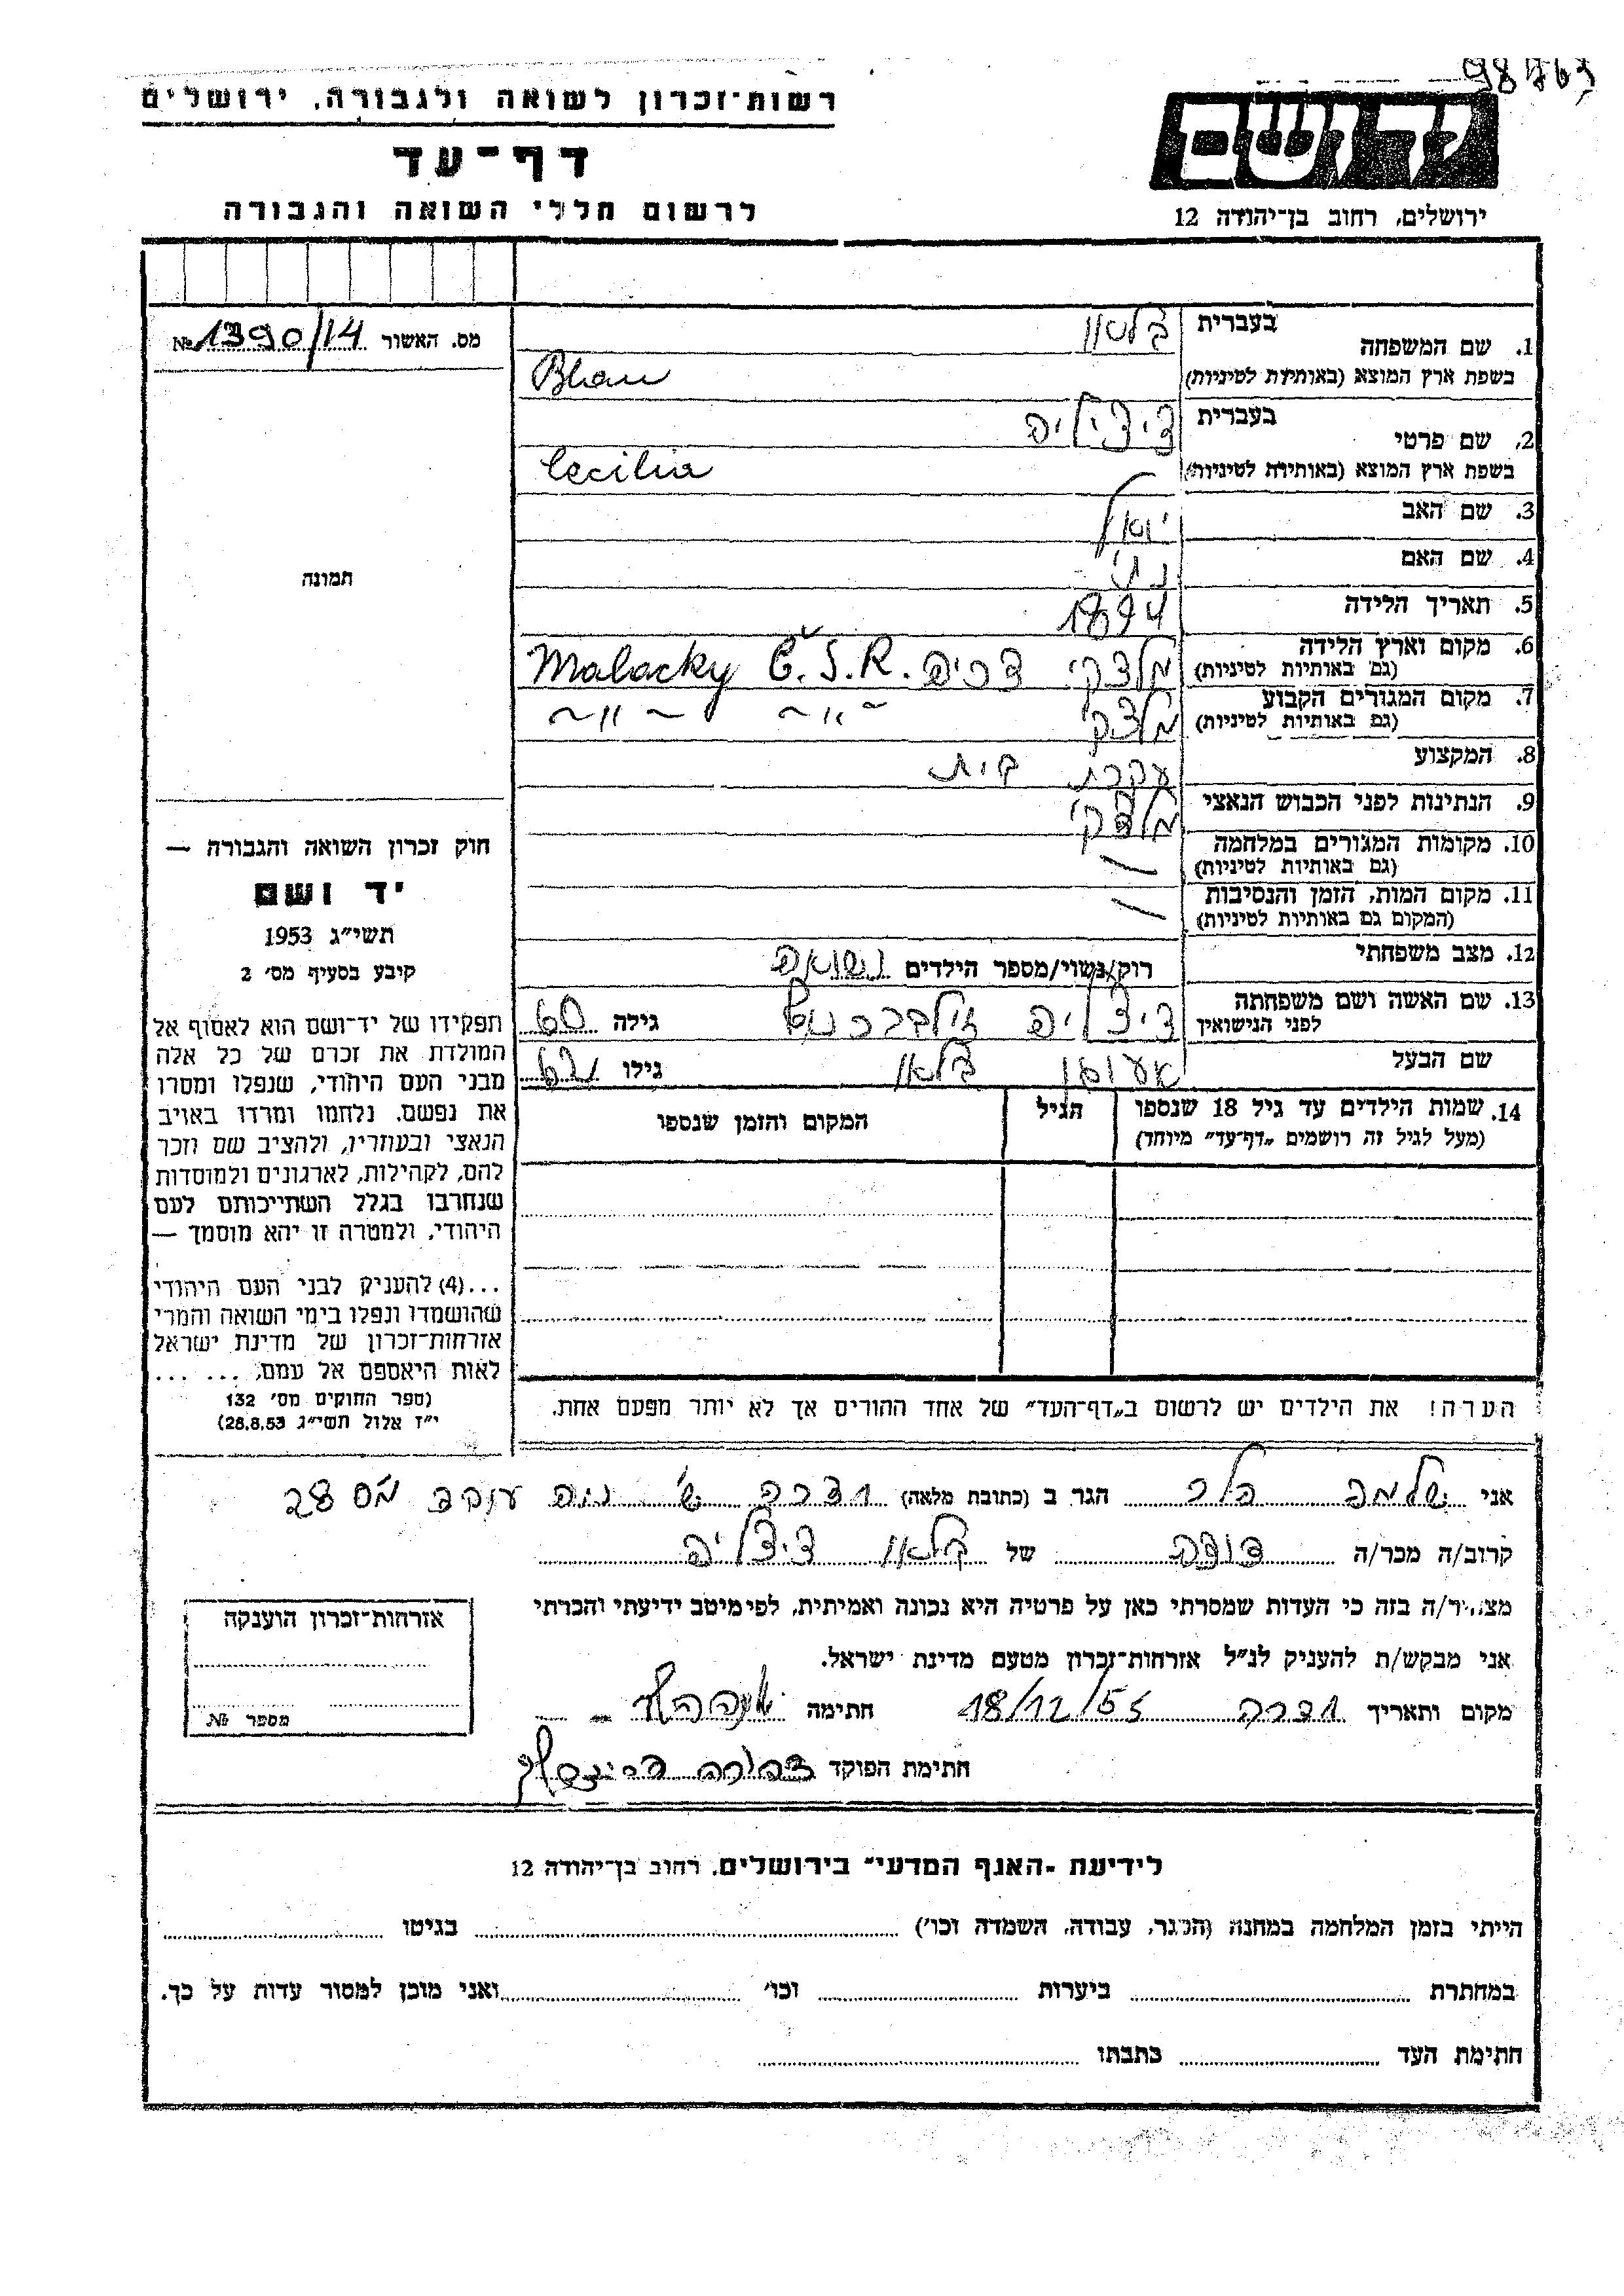 רשות־זכרון לשואה ולגבורה, ירושלים
דף־עד
לרשום חללי השואה והגבורה
יד ושם
ירושלים, רחוב בן־יהודה 12
מס. האשור № 1390/14
תמונה
חוק זכרון השואה והגבורה —
יד ושם
תשי״ג 1953
קיבע בסעיף מס׳ 2
תפקידו של יד־ושם הוא לאסוף אל
המולדת את זכרם של כל אלה
מבני העם היהודי, שנפלו ומסרו
את נפשם, נלחמו ומרדו באויב
הנאצי ובעוזריו, ולהציב שם וזכר
להם, לקהילות, לארגונים ולמוסדות
שנחרבו בגלל השתייכותם לעם
היהודי, ולמטרה זו יהא מוסמך —
...(4) להעניק לבני העם היהודי
שהושמדו ונפלו בימי השואה והמרי
אזרחות־זכרון של מדינת ישראל
לאות היאספם אל עמם, ... ...
(ספר החוקים מס׳ 132
י״ז אלול תשי״ג 28.8.53)
1. שם המשפחה בעברית בלאו
בשפת ארץ המוצא (באותיות לטיניות) Blau
2. שם פרטי בעברית ציציליה
בשפת ארץ המוצא (באותיות לטיניות) Cecilia
3. שם האב יואל
4. שם האם
5. תאריך הלידה 1894
6. מקום וארץ הלידה (גם באותיות לטיניות) מלצקי צכיה Malacky Č.S.R.
7. מקום המגורים הקבוע (גם באותיות לטיניות) מלצקי ~ " ~ ~ " ~
8. המקצוע עקרת בית
9. הנתינות לפני הכבוש הנאצי מלצקי
10. מקומות המגורים במלחמה (גם באותיות לטיניות) —
11. מקום המות, הזמן והנסיבות (המקום גם באותיות לטיניות) —
12. מצב משפחתי רוק/נשוי/מספר הילדים נשואה
13. שם האשה ושם משפחתה לפני הנישואין ציצליה זילברברג גילה 60
שם הבעל בלאו גילו 62
14. שמות הילדים עד גיל 18 שנספו הגיל המקום והזמן שנספו
(מעל לגיל זה רושמים „דף־עד״ מיוחד)
הערה! את הילדים יש לרשום ב„דף־העד״ של אחד ההורים אך לא יותר מפעם אחת.
אני שלמה הגר ב (כתובת מלאה) חדרה ש׳ נוה עובד מס 28
קרוב/ה מכר/ה דודה של בלאו ציצליה
מצהיר/ה בזה כי העדות שמסרתי כאן על פרטיה היא נכונה ואמיתית, לפי מיטב ידיעתי והכרתי
אני מבקש/ת להעניק לנ״ל אזרחות־זכרון מטעם מדינת ישראל.
מקום ותאריך חדרה 18/12/55 חתימה
חתימת הפוקד
אזרחות־זכרון הוענקה
מספר №
לידיעת „האגף המדעי״ בירושלים, רחוב בן־יהודה 12
הייתי בזמן המלחמה במחנה (הסגר, עבודה, השמדה וכו׳) בגיטו
במחתרת ביערות וכו׳ ואני מוכן למסור עדות על כך.
חתימת העד כתבתו